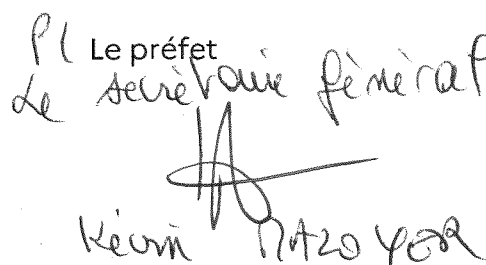 P/ Le préfet
Le secrétaire général
Kévin MAZOYER